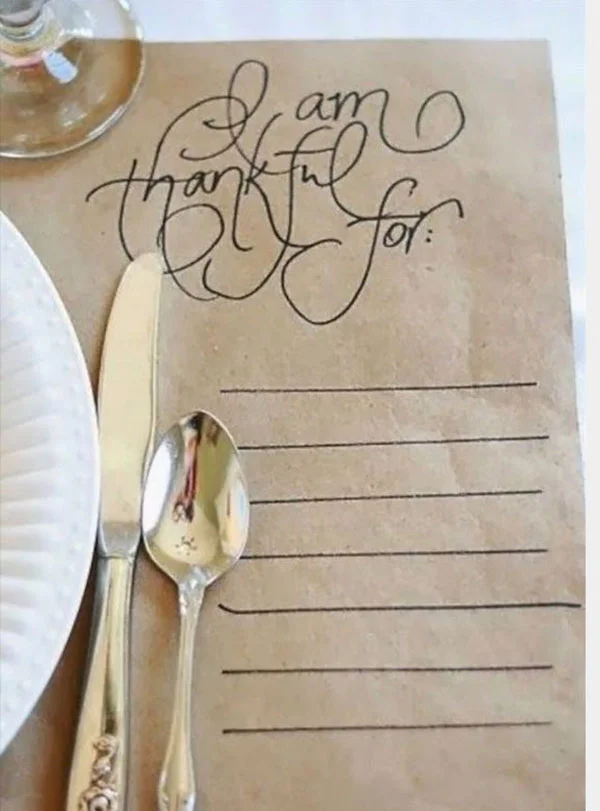 I am
thankful
for: